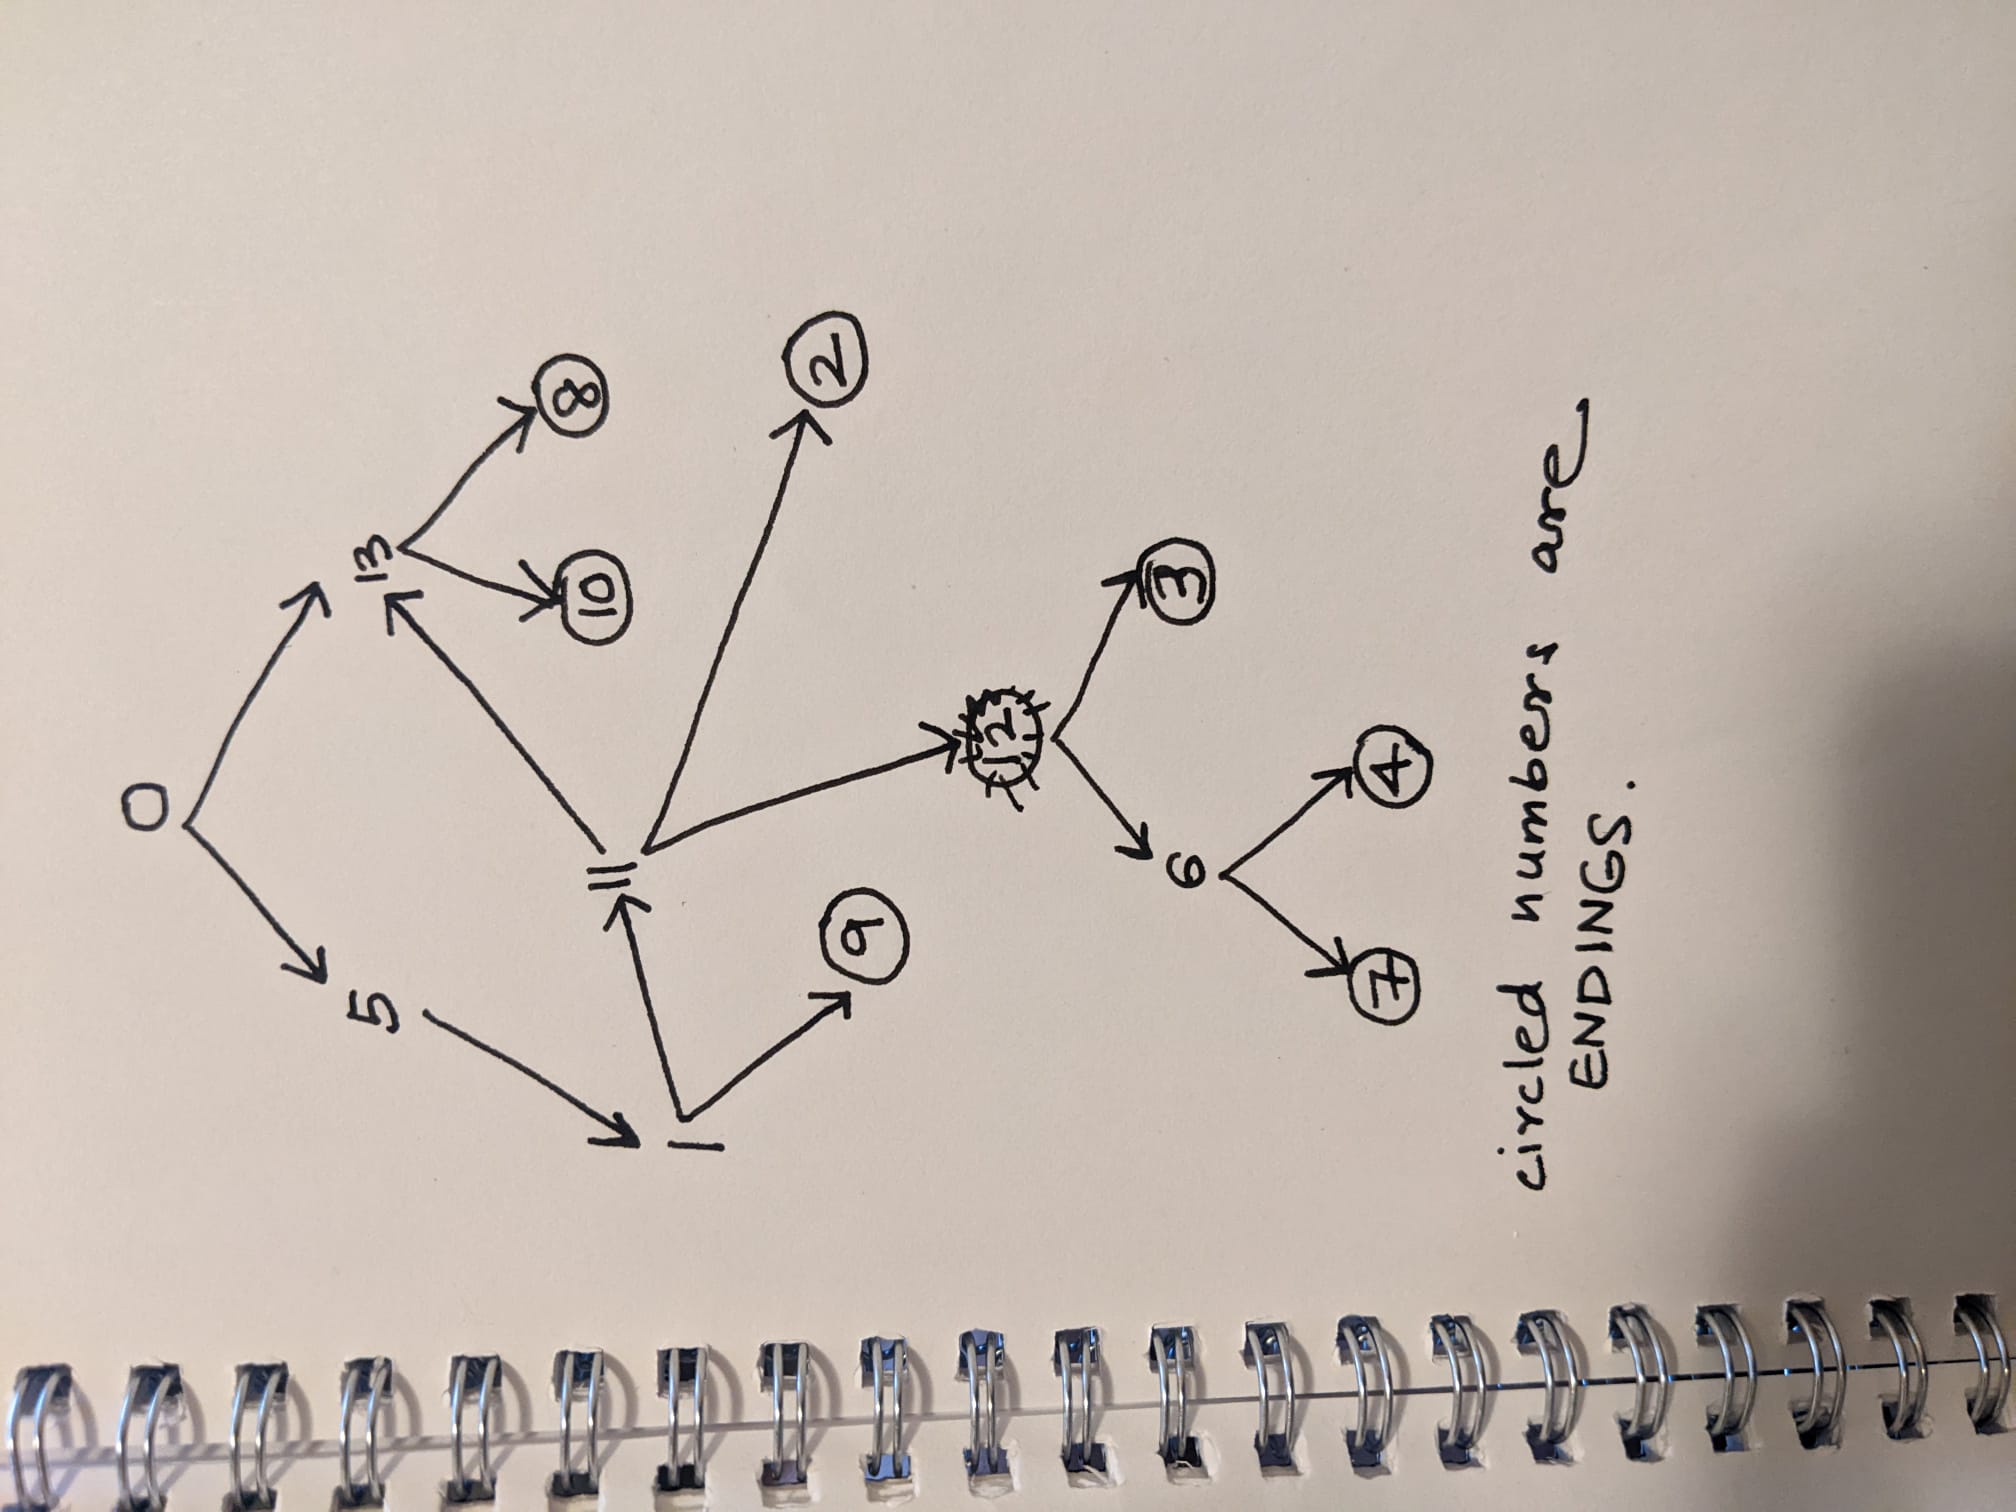 0
5 13
10 8
1 11
9 2
12
6 3
7 4
circled numbers are
ENDINGS.